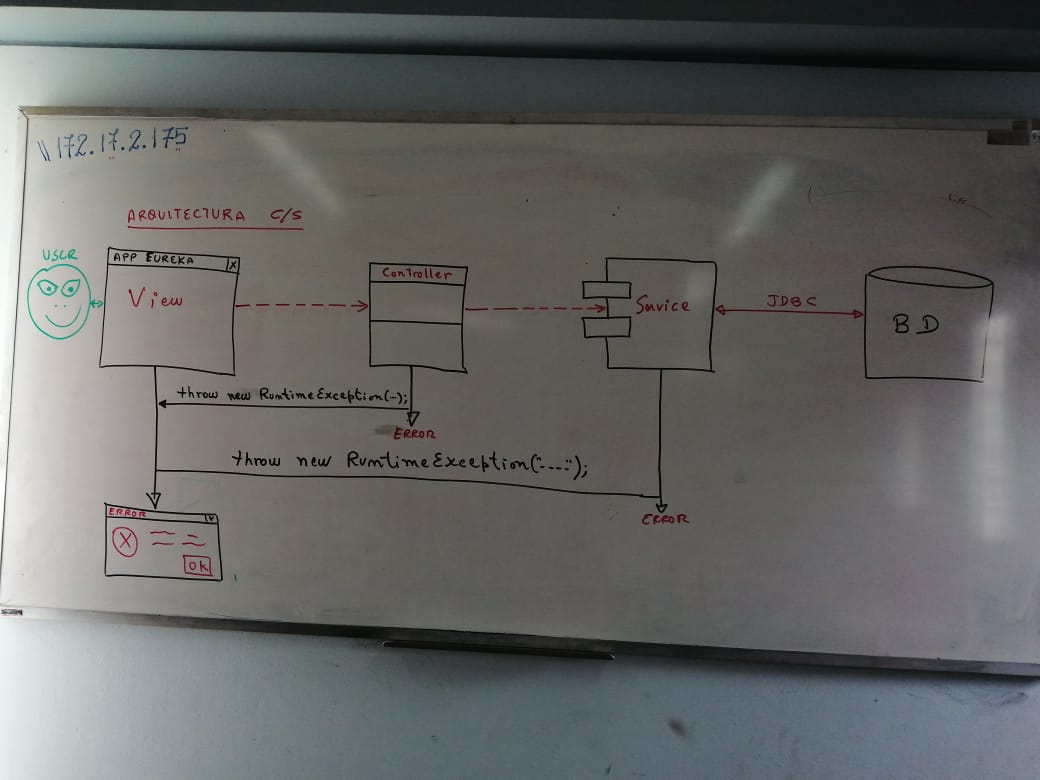 \\172.17.2.175
ARQUITECTURA C/S
USER
APP EUREKA X
View
Controller
Service
JDBC
BD
throw new RuntimeException(-);
ERROR
throw new RuntimeException("----");
ERROR
ERROR
X
OK